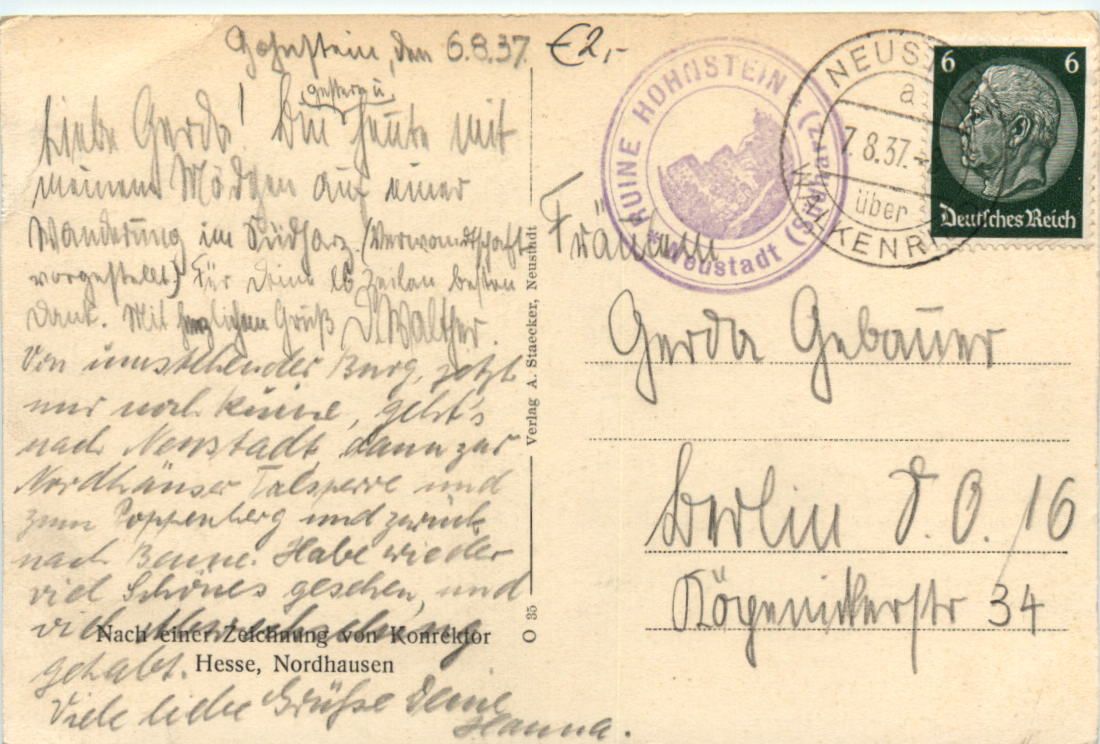 Hohnstein, den 6.8.37.
€2,-
gestern u.
Liebe Gerda! Bin heute mit
meinem Mädchen auf einer
Wanderung im Südharz. (Verwandtschaft
vorgestellt) Für Deine lb Zeilen besten
Dank. Mit herzlichem Gruß D. Walther.
Von umstehender Burg, jetzt
nur noch Ruine, geht's
nach Neustadt, dann zur
Nordhäuser Talsperre und
zum Poppenberg und zurück
nach Henne. Habe wieder
viel Schönes gesehen, und
viel
gehabt.
Viele liebe Grüße Deine
Hanna.
Nach einer Zeichnung von Konrektor
Hesse, Nordhausen
O 35
Verlag A. Staecker, Neustadt
RUINE HOHNSTEIN
* Neustadt (Südharz) *
NEUST
a
7.8.37.-
über
WALKENRIED
6 6
Deutsches Reich
Fräulein
Gerda Gebauer
Berlin S.O. 16
Köpenickerstr 34